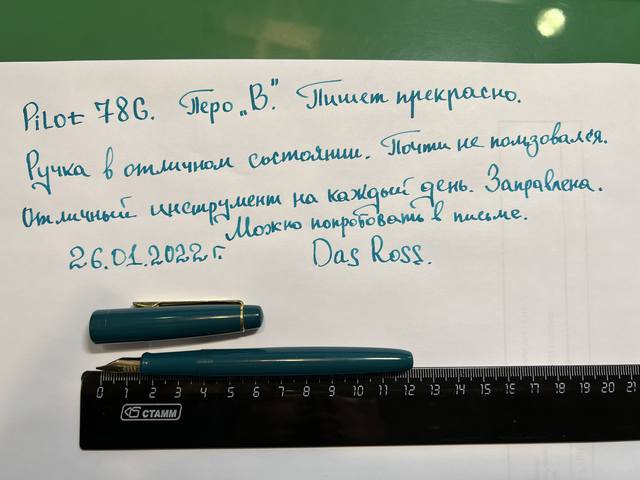 Pilot 78G. Перо „В". Пишет прекрасно.
Ручка в отличном состоянии. Почти не пользовался.
Отличный инструмент на каждый день. Заправлена.
Можно попробовать в письме.
26.01.2022г. Das Ross.
0 1 2 3 4 5 6 7 8 9 10 11 12 13 14 15 16 17 18 19 20 21
СТАММ